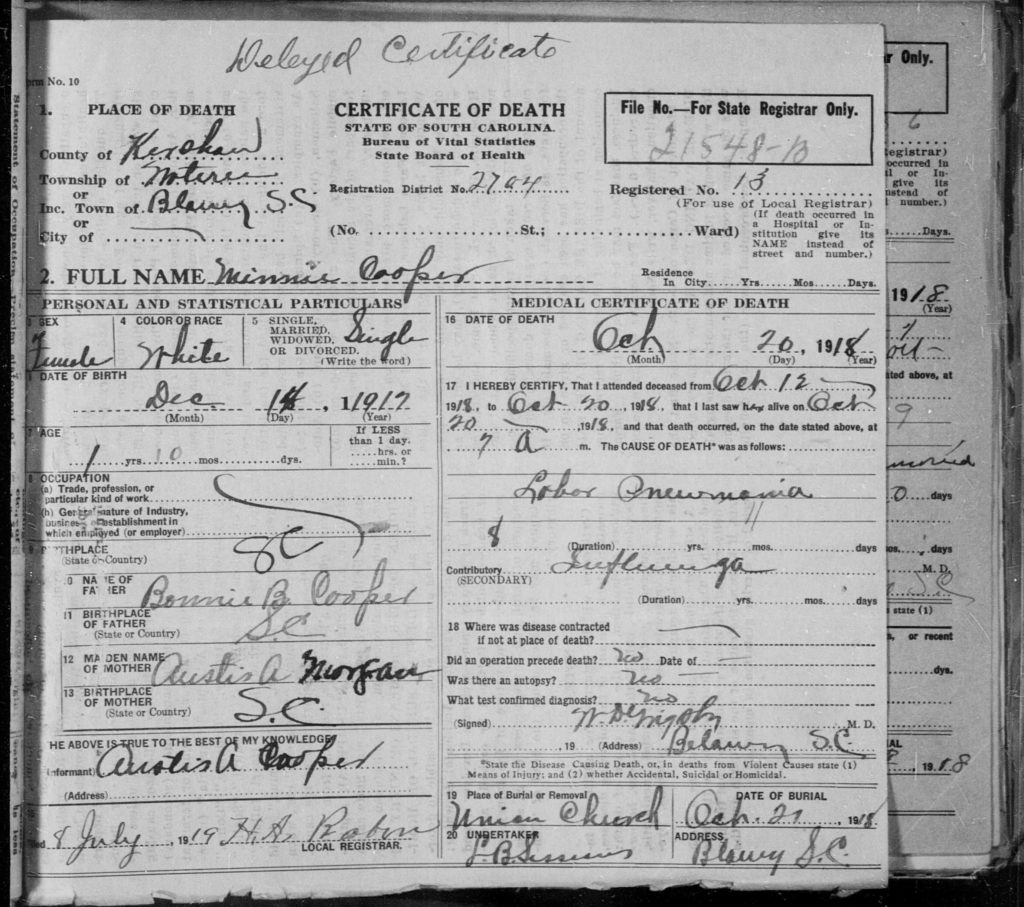 Delayed Certificate
Form No. 10
1. PLACE OF DEATH
County of Kershaw
Township of Wateree
or
Inc. Town of Blaney S.C
or
City of
CERTIFICATE OF DEATH
STATE OF SOUTH CAROLINA.
Bureau of Vital Statistics
State Board of Health
Registration District No. 2704
(No. St.; Ward)
File No.—For State Registrar Only.
21548-B
Registered No. 13
(For use of Local Registrar)
(If death occurred in
a Hospital or In-
stitution give its
NAME instead of
street and number.)
2. FULL NAME Minnie Cooper
Residence
In City Yrs. Mos. Days.
PERSONAL AND STATISTICAL PARTICULARS
3 SEX
Female
4 COLOR OR RACE
White
5 SINGLE,
MARRIED,
WIDOWED,
OR DIVORCED.
Single
(Write the word)
6 DATE OF BIRTH
Dec. 14, 1917
(Month) (Day) (Year)
7 AGE
1 yrs. 10 mos. dys.
If LESS
than 1 day.
hrs. or
min.?
8 OCCUPATION
(a) Trade, profession, or
particular kind of work
(b) General nature of Industry,
business or establishment in
which employed (or employer)
9 BIRTHPLACE
(State or Country)
SC
10 NAME OF
FATHER
Bonnie B Cooper
11 BIRTHPLACE
OF FATHER
(State or Country)
SC
12 MAIDEN NAME
OF MOTHER
Austis A Morgan
13 BIRTHPLACE
OF MOTHER
(State or Country)
S.C.
THE ABOVE IS TRUE TO THE BEST OF MY KNOWLEDGE
(Informant) Austis A Cooper
(Address)
Filed 8 July, 1919 H.A. Rabon
LOCAL REGISTRAR.
MEDICAL CERTIFICATE OF DEATH
16 DATE OF DEATH
Oct 20, 1918
(Month) (Day) (Year)
17 I HEREBY CERTIFY, That I attended deceased from Oct 12
1918, to Oct 20, 1918, that I last saw her alive on Oct
20, 1918, and that death occurred, on the date stated above, at
7 A m. The CAUSE OF DEATH* was as follows:
Lobar Pneumonia
8
(Duration) yrs. mos. days
Contributory Influenza
(SECONDARY)
(Duration) yrs. mos. days
18 Where was disease contracted
if not at place of death?
Did an operation precede death? no Date of
Was there an autopsy? no
What test confirmed diagnosis? no
(Signed) M. D.
, 19 (Address) Blaney S.C
*State the Disease Causing Death, or, in deaths from Violent Causes state (1)
Means of Injury; and (2) whether Accidental, Suicidal or Homicidal.
19 Place of Burial or Removal
Union Church
DATE OF BURIAL
Oct. 21, 1918
20 UNDERTAKER
L.B. Sessions
ADDRESS
Blaney S.C.